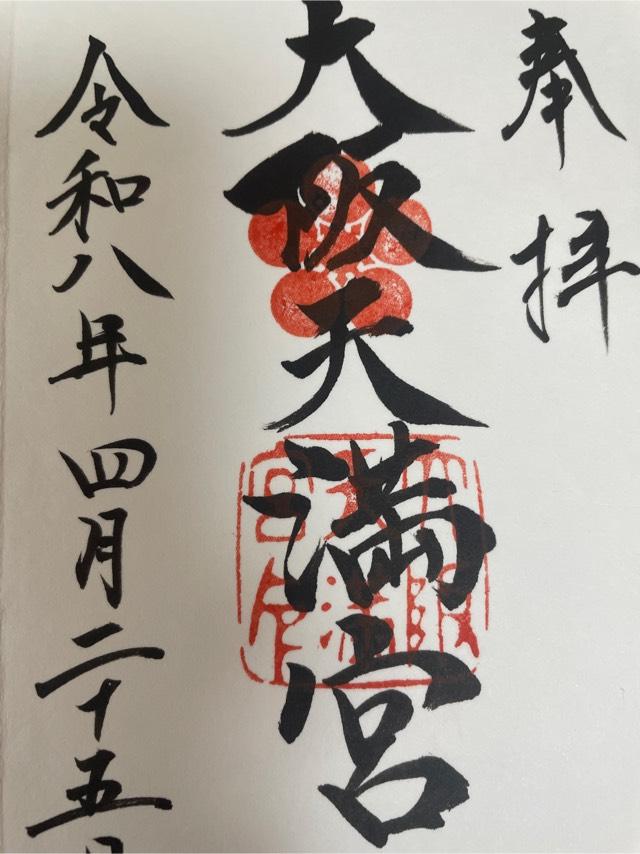 奉拝
大阪天満宮
令和八年四月二十五日